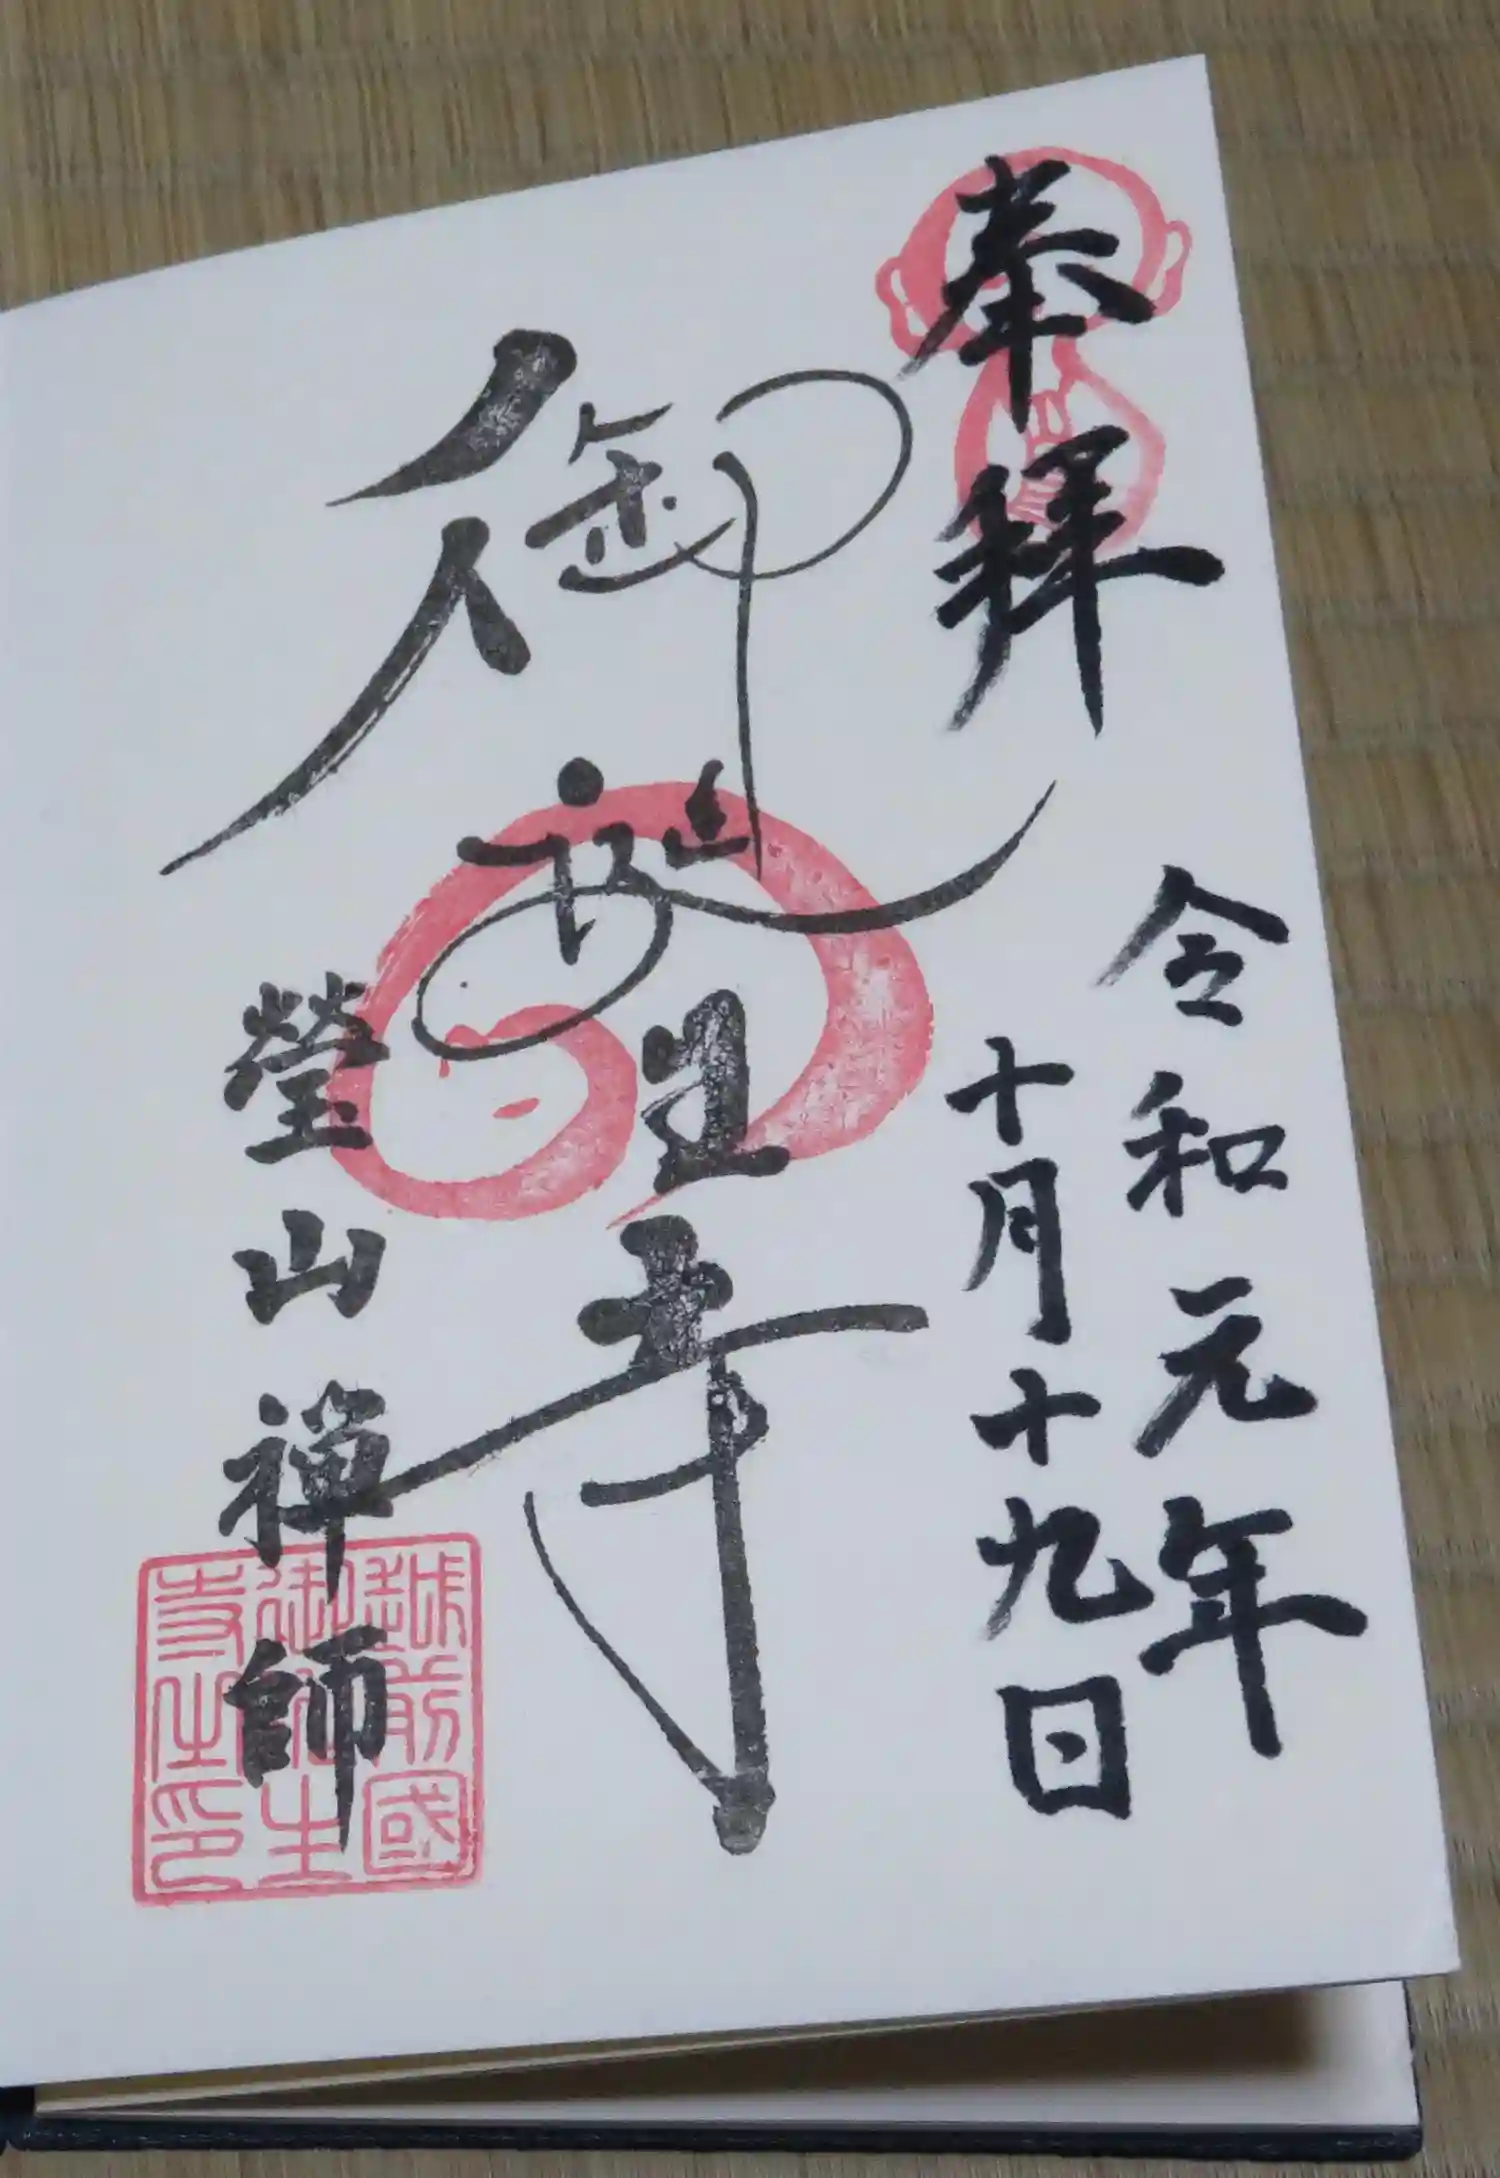 奉拝
令和元年
十月十九日
御誕生寺
瑩山禪師
越前國
御誕生
寺之印